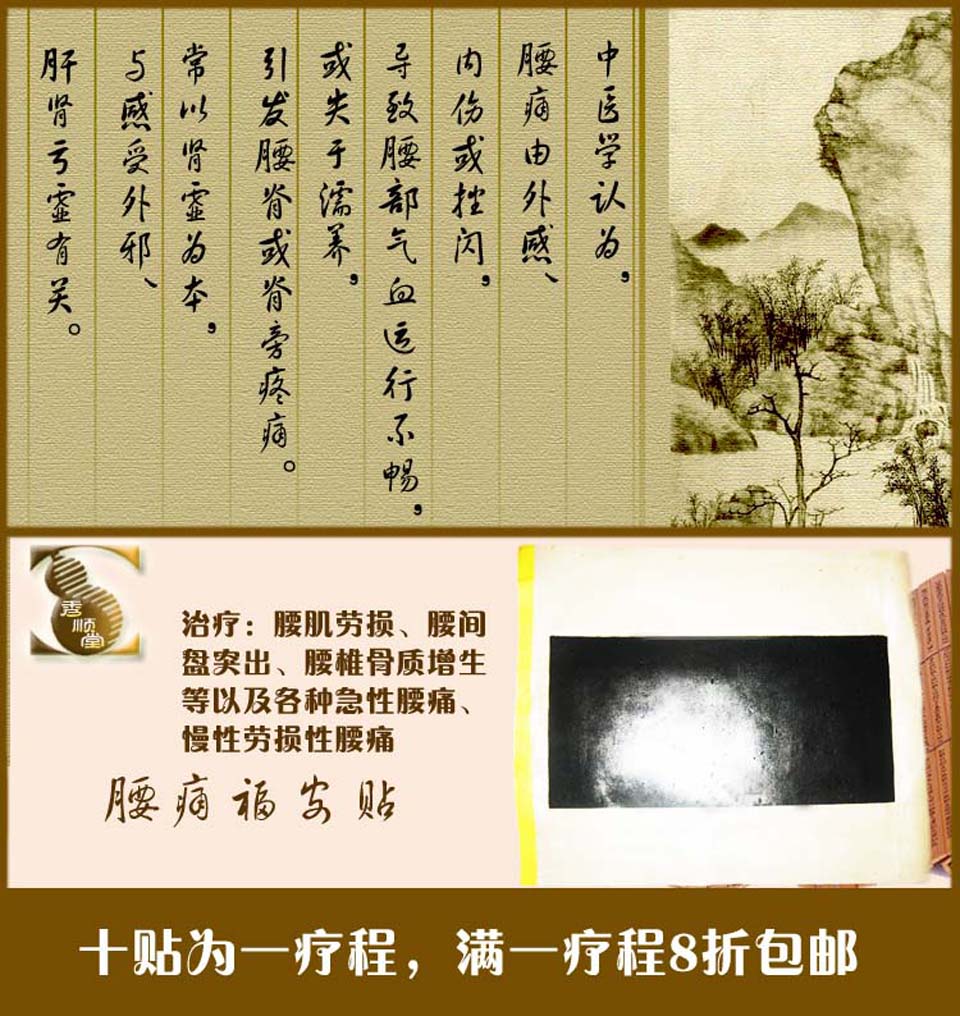 中医学认为，
腰痛由外感、
内伤或挫闪，
导致腰部气血运行不畅，
或失于濡养，
引发腰脊或脊旁疼痛。
常以肾虚为本，
与感受外邪、
肝肾亏虚有关。
秀顺堂
治疗：腰肌劳损、腰间
盘突出、腰椎骨质增生
等以及各种急性腰痛、
慢性劳损性腰痛
腰痛福安贴
十贴为一疗程，满一疗程8折包邮